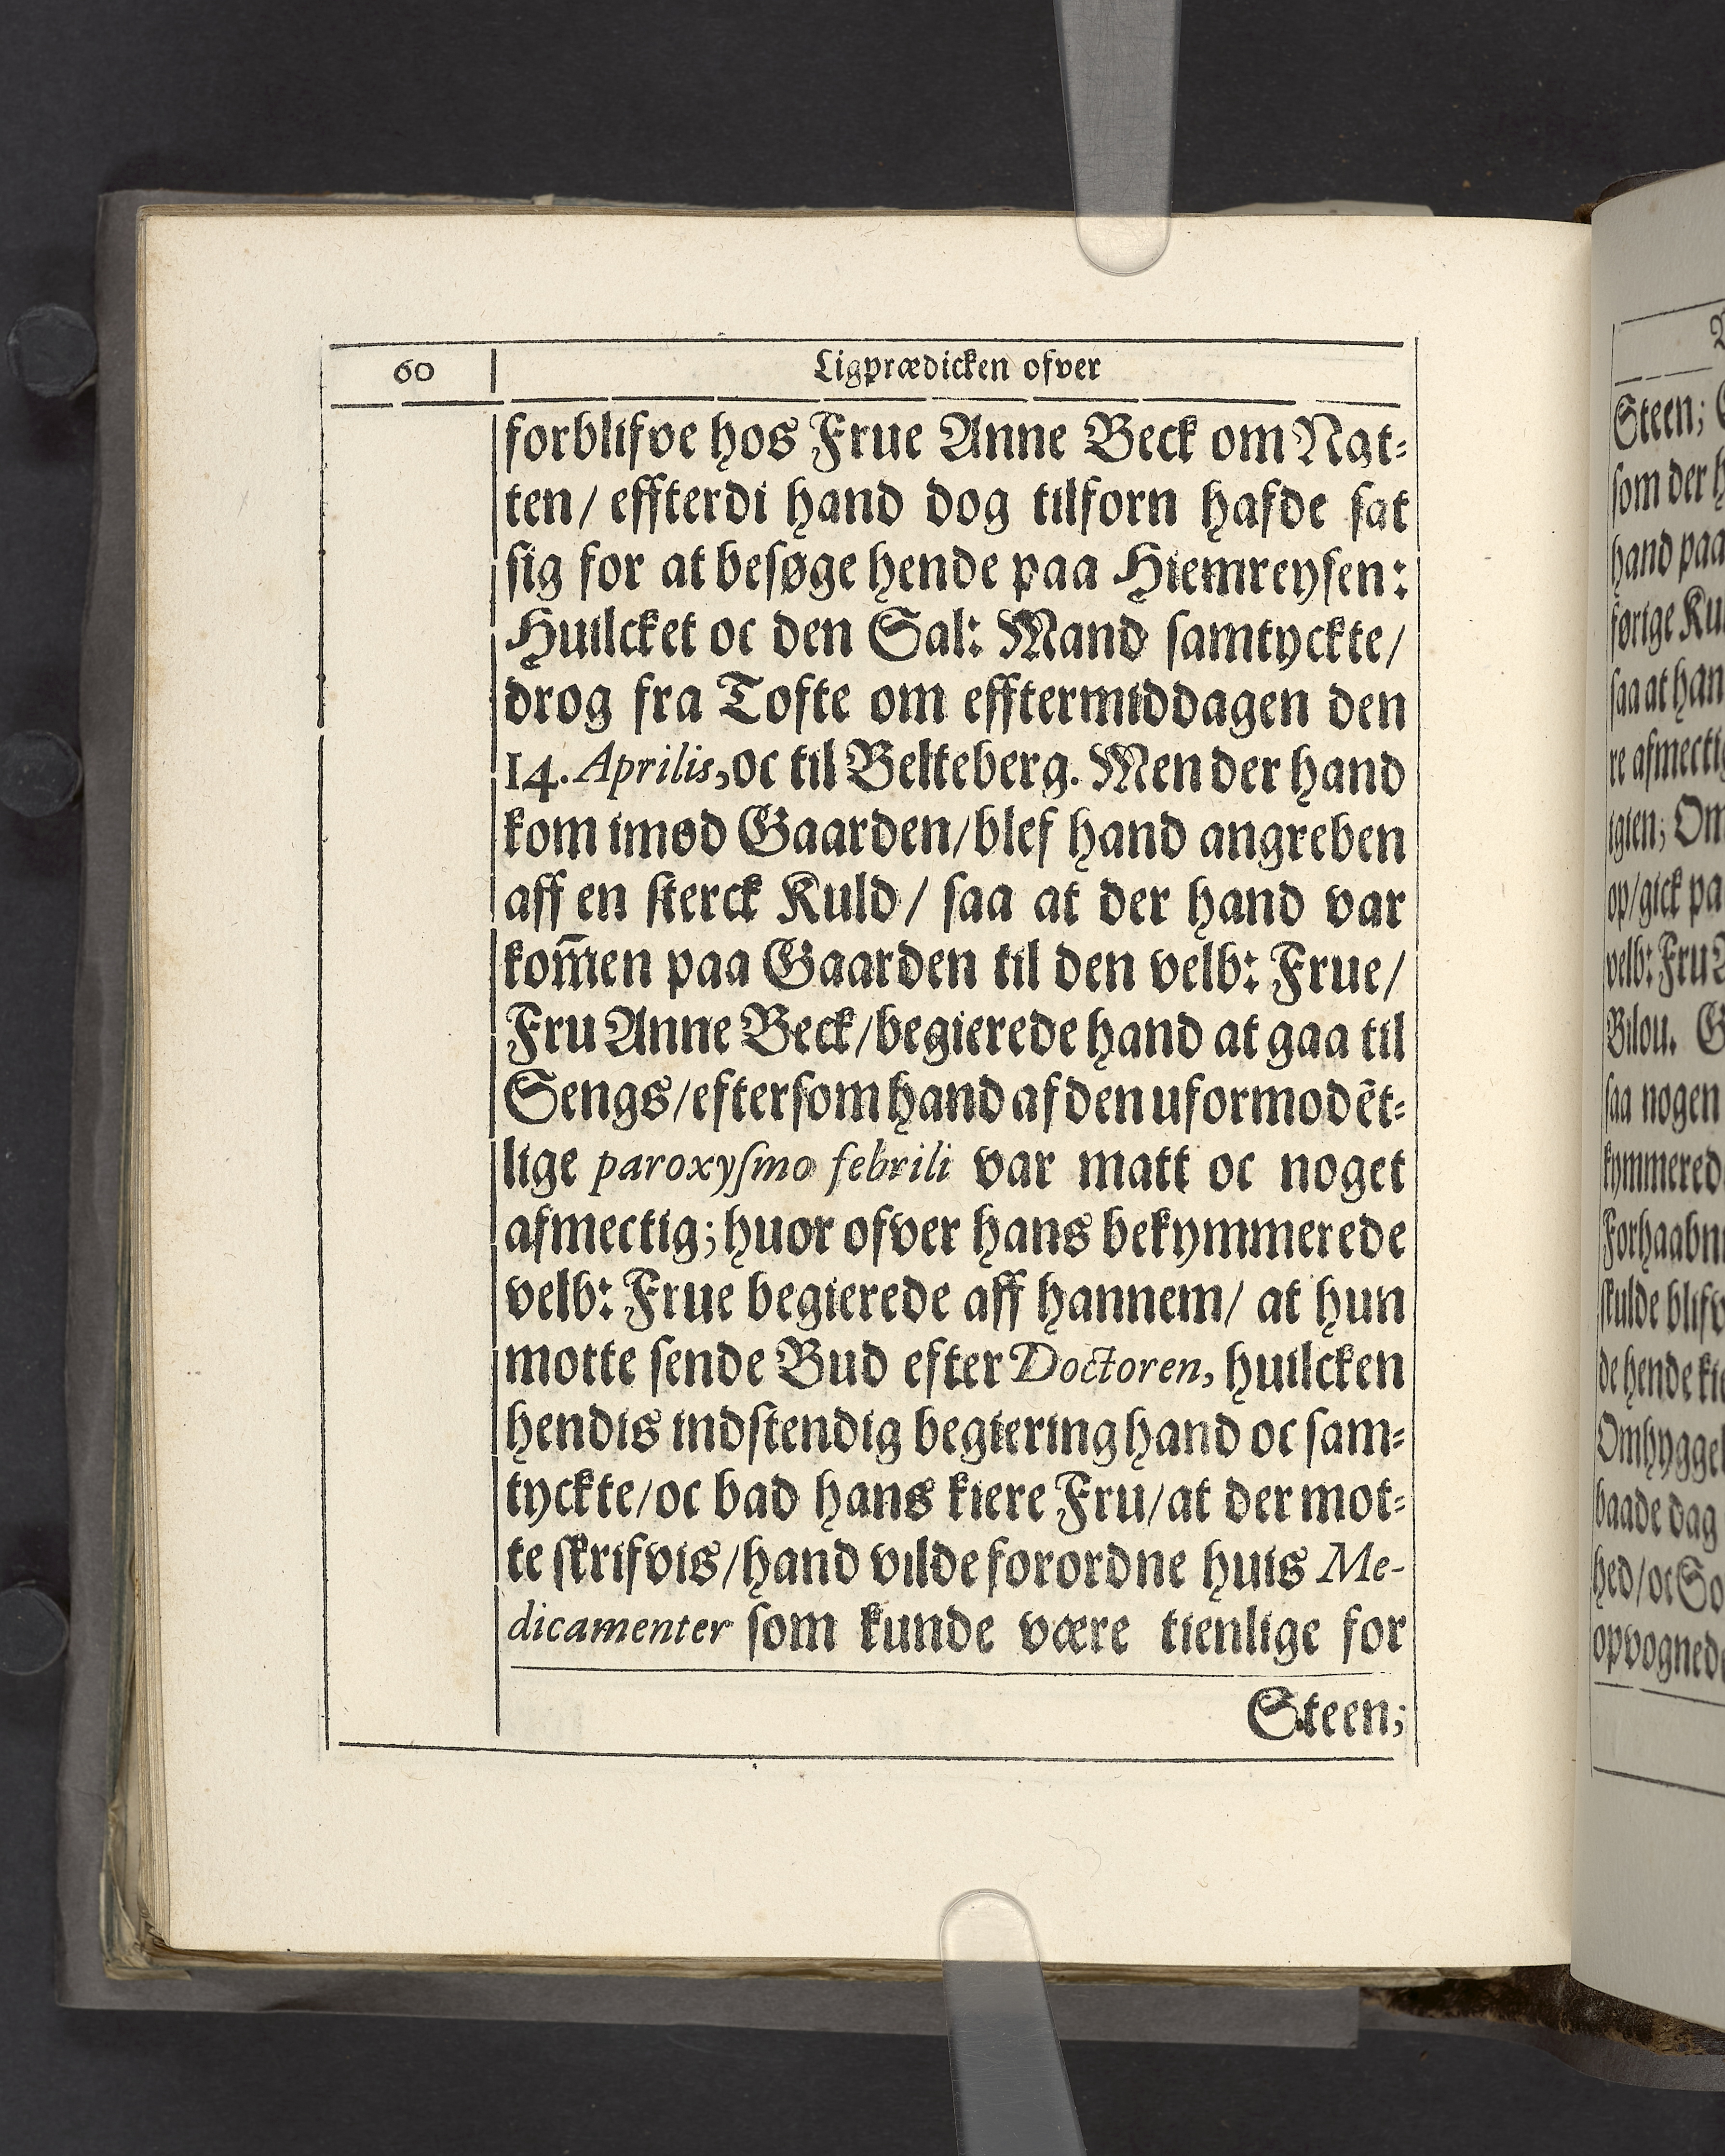 60
Ligprædicken ofver
forblifve hos Frue Anne Beck om Nat-
ten/ effterdi hand dog tilforn hafde sat
sig for at besøge hende paa Hiemreysen:
Huilcket oc den Sal: Mand samtyckte/
drog fra Tofte om efftermiddagen den
14. Aprilis, oc til Belteberg. Men der hand
kom imod Gaarden/ blef hand angreben
aff en sterck Kuld/ saa at der hand var
kom̅en paa Gaarden til den velb: Frue/
Fru Anne Beck/ begierede hand at gaa til
Sengs/ eftersom hand af den uformodēt-
lige paroxysmo febrili var matt oc noget
afmectig; huor ofver hans bekymmerede
velb: Frue begierede aff hannem/ at hun
motte sende Bud efter Doctoren, huilcken
hendis indstendig begiering hand oc sam-
tyckte/ oc bad hans kiere Fru/ at der mot-
te skrifvis/ hand vilde forordne huis Me-
dicamenter som kunde være tienlige for
Steen;
Steen;
som der
hand paa
førige
saa at
igien;
op/ gick
velb: Fru
Bilou.
saa nogen
skulde
de hende
baade dag
hed/ oc